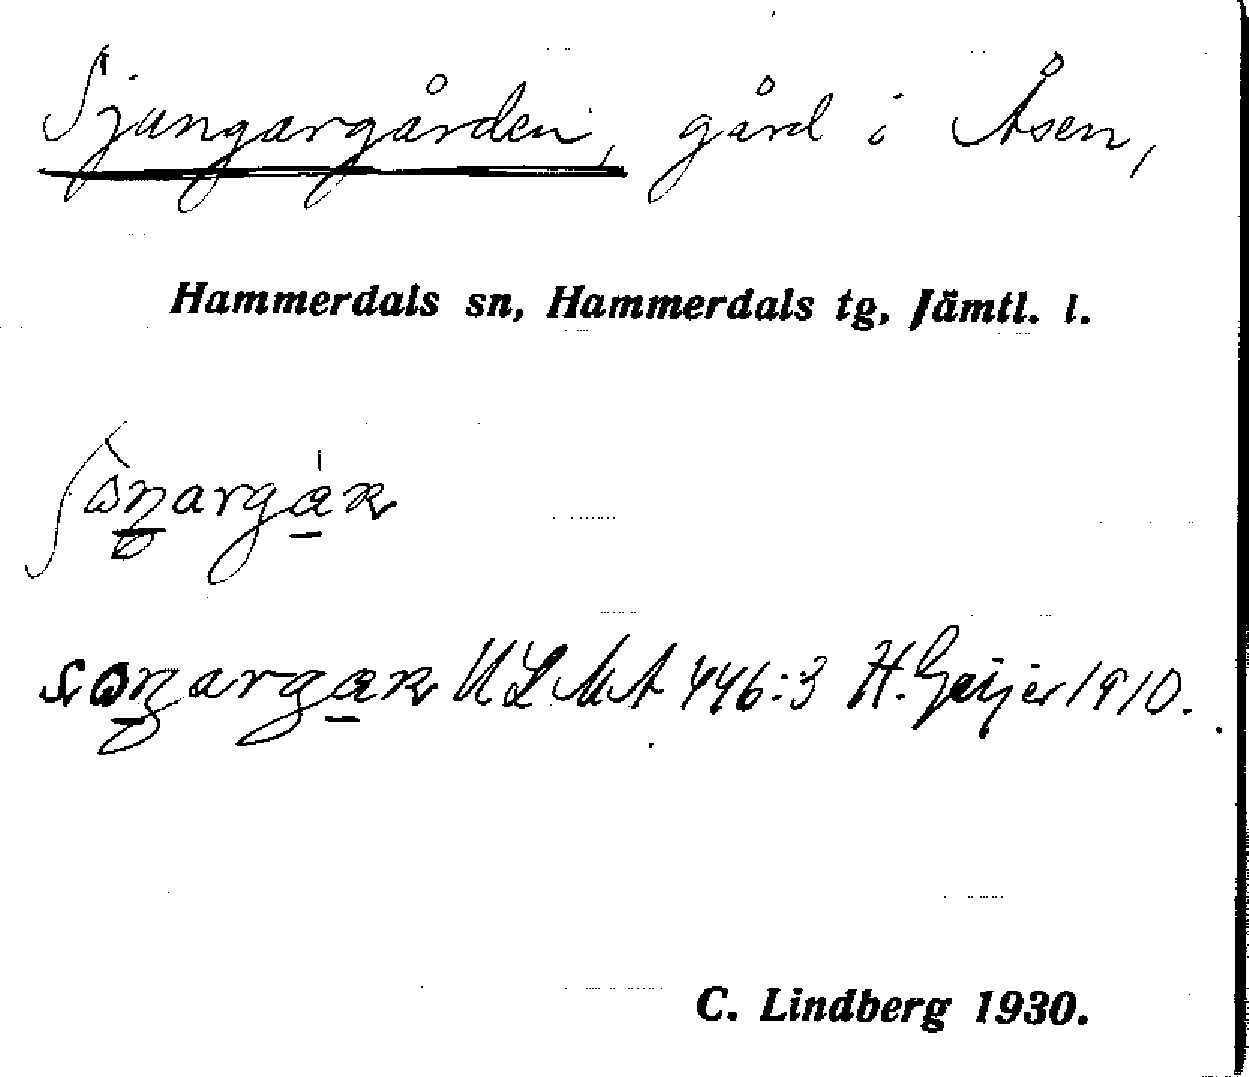 Sjungargården, gård i Åsen,
Hammerdals sn, Hammerdals tg, Jämtl. l.
ULMA 446:3 H. Geijer 1910.
C. Lindberg 1930.